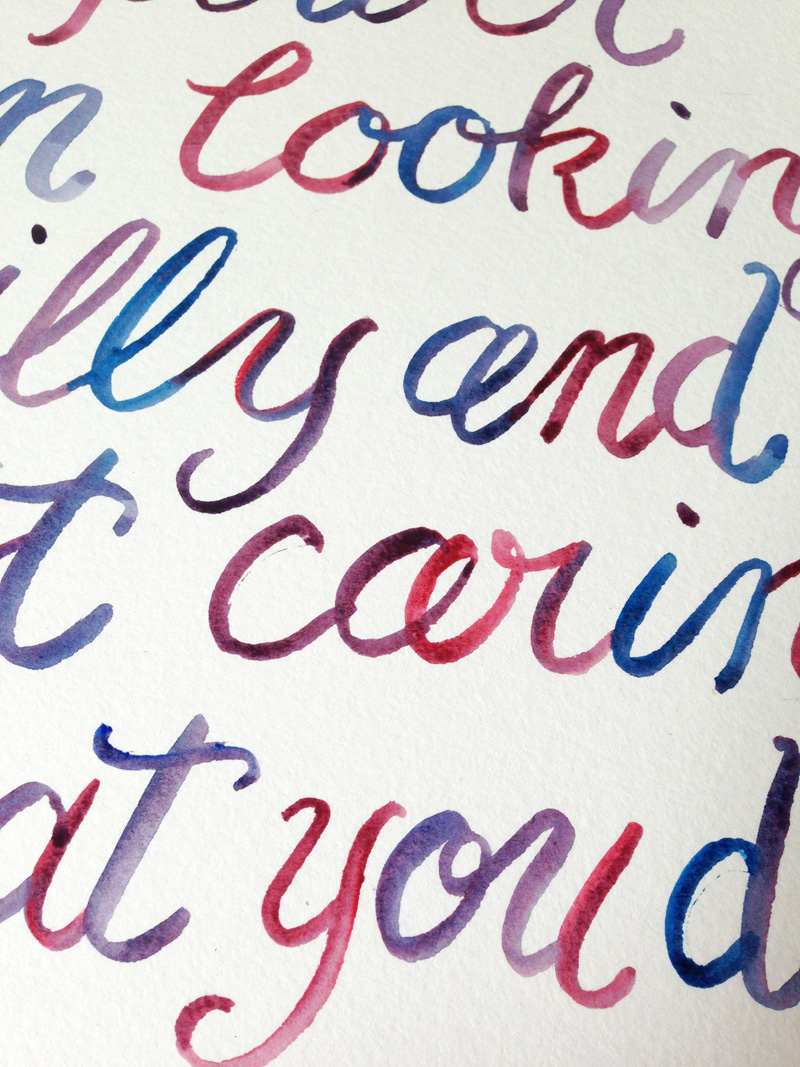 n looking
illy and
t caring
at you d